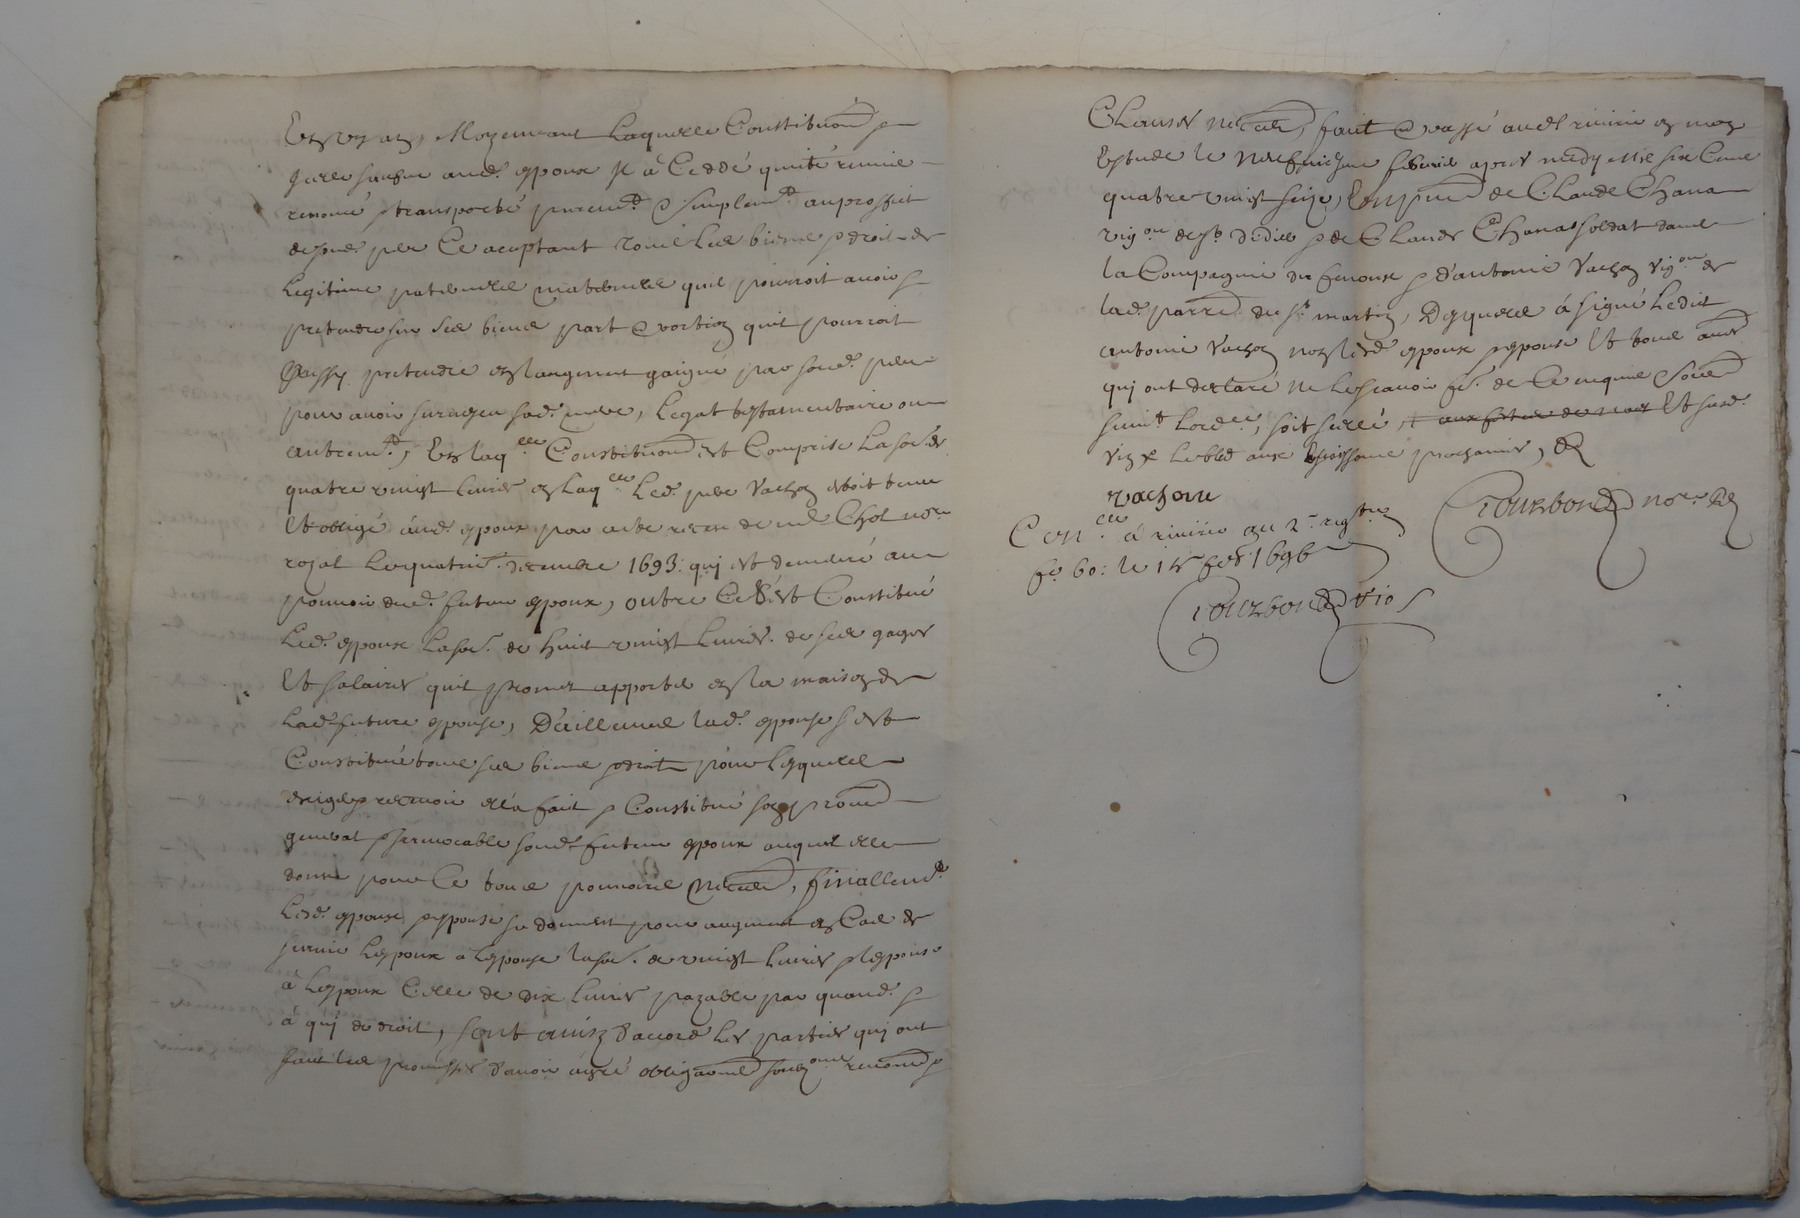 en un an, Moyennant laquelle Constituon &
icelle faisant aud. espoux Il à Ceddé quitté remie
renoncé & transporté purem.t & simplem.t au proffict
de pere Ce acceptant touts ses biens & droits de
Legitime paternelle maternelle quil pourroit avoir &
pretendre sur ses biens part & portion quil pourroit
aussy pretendre en laugment gaigné par sond. pere
pour avoir survescu sad. mere, Legat testamentaire ou
autrem.t, En laq.elle Constituon est Comprise La so.e de
quatre vingt livres en laq.elle Led. pere Vachon estoit tenu
et obligé aud. espoux par acte receu de me Chol no.re
royal Le quatrie. decembre 1693: qui est demeuré au
pouvoir dud. futur espoux, outre Ce s'est Constitué
Led. espoux La so.e de huit vingt livres de ses gages
et salaires quil promet apporter en la maison de
Lad. future espouse, D'ailleurs lad. espouse s'est
Constitué tous ses biens & droits pour lesquels
exiger & recevoir elle a fait & Constitué son procur
general & irrevocable sond. futur espoux auquel elle
donne pour Ce tous pouvoirs necess, finallem.t
Lesd. espoux & espouse se donnent pour augment en Cas de
survie Lespoux a Lespouse la so.e de vingt livres & lespouse
à Lespoux Celle de dix livres payable par quand. &
à qui de droit, sont ainsy d'accord les parties qui ont
fait les promesses d'avoir aggré obligaons soubz.ons renons &
Clauses necess, fait & passé aud. riverie en mon
Estude le neufviesme febvrier apres midy mil six Cent
quatre vingt seize, En presence de Claude Chana
vig.on de st didier & de Claude Chanas soldat dans
la Compagnie de & d'antoine Vachon vig.on de
lad. parre. de st martin, Desquels à signé Ledit
antoine Vachon non lesd. espoux & espouse et tous autres
qui ont declaré ne le scavoir fe. de Ce requis & somm
suiv.t Lord.ce, soit scellé, et sus.d
vachon
Con.lle à riverie au 2e. reg.tre
fo. 60: le 15 feb. 1696
Courbon no.re R
Courbon